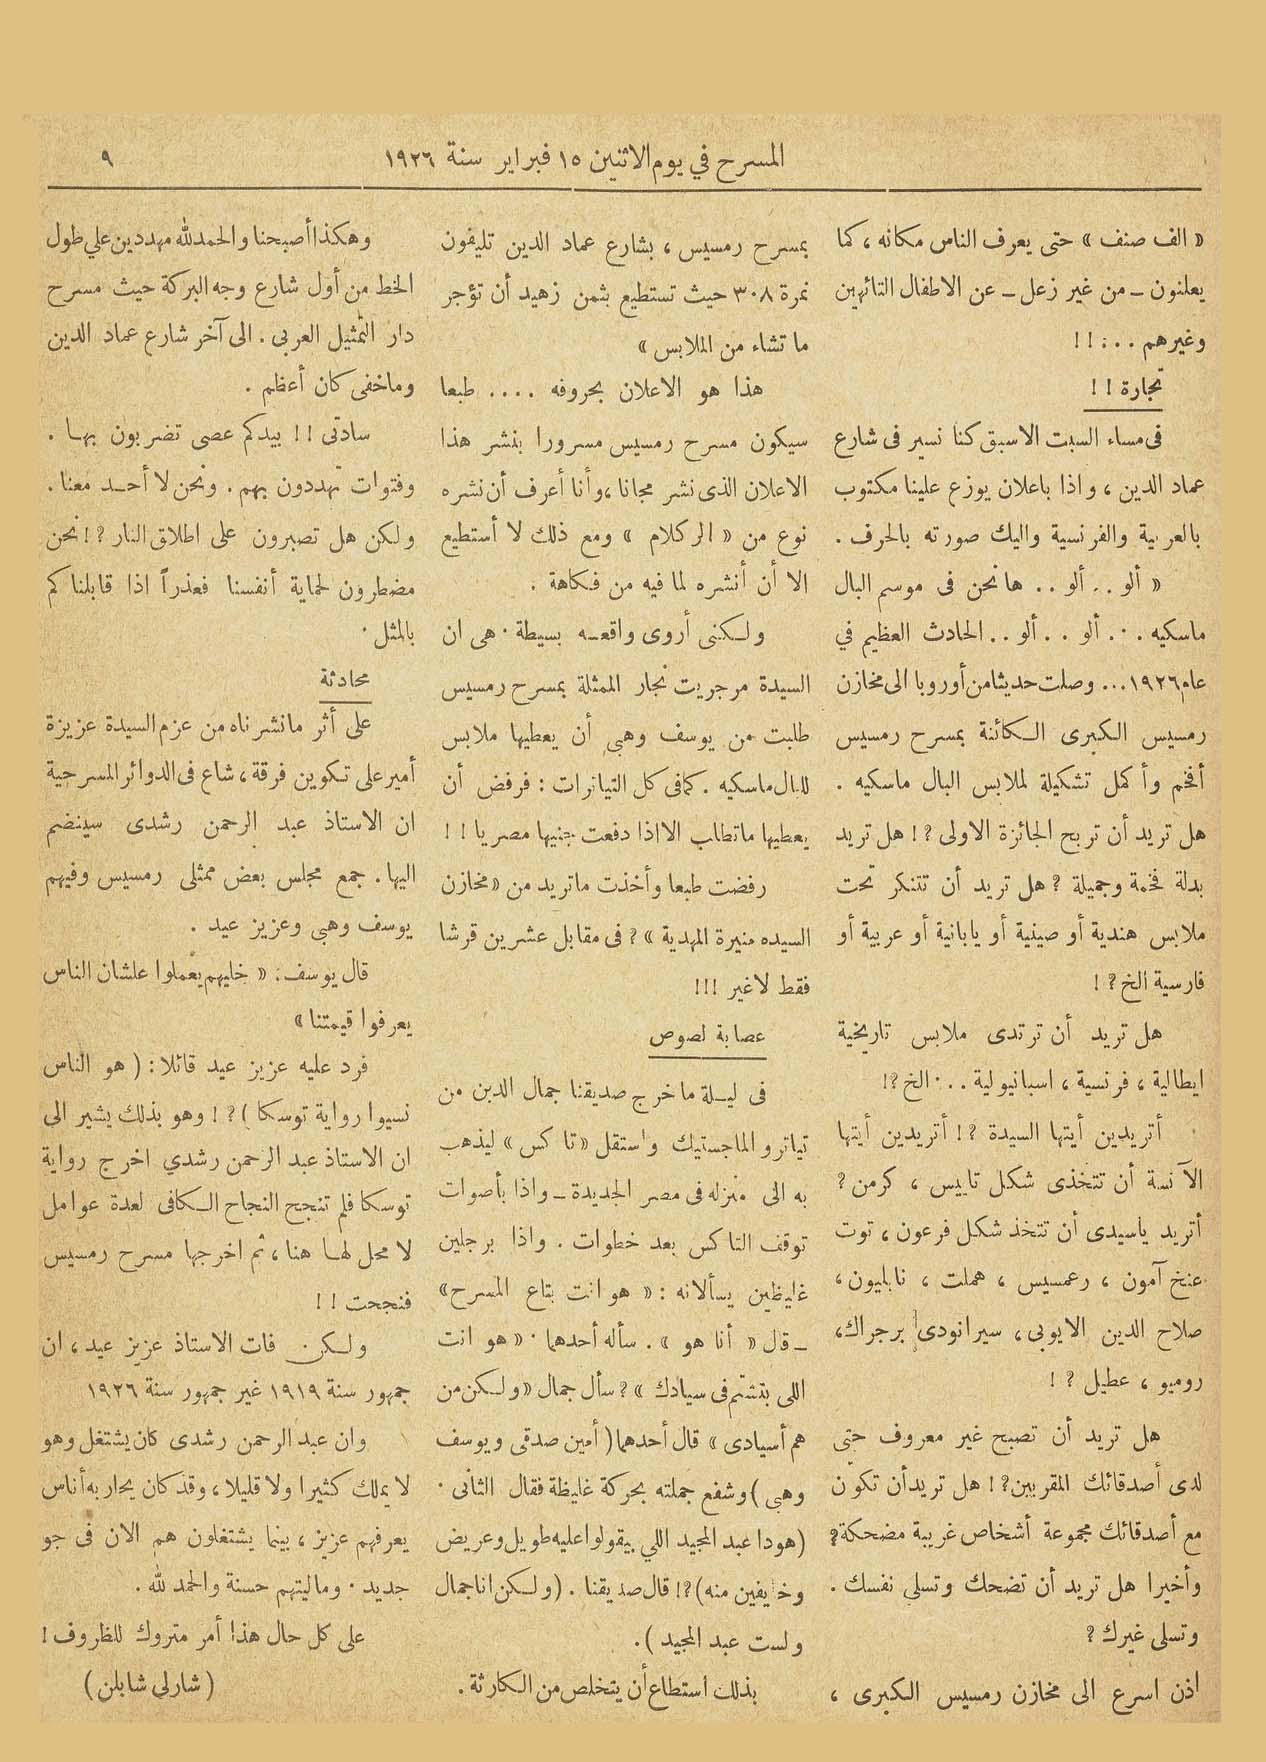 المسرح في يوم الاثنين ١٥ فبراير سنة ١٩٢٦
٩
« الف صنف » حتى يعرف الناس مكانه ، كما
يعلنون ـ من غير زعل ـ عن الاطفال التائهين
وغيرهم . . . ! !
تجارة ! !
فى مساء السبت الاسبق كنا نسير فى شارع
عماد الدين ، واذا باعلان يوزع علينا مكتوب
بالعربية والفرنسية واليك صورته بالحرف .
« ألو . . ألو . . ها نحن فى موسم البال
ماسكيه . . . ألو . . ألو . . الحادث العظيم في
عام ١٩٢٦ . . . وصلت حديثا من أوروبا الى مخازن
رمسيس الكبرى الكائنة بمسرح رمسيس
أفخم وأكمل تشكيلة لملابس البال ماسكيه .
هل تريد أن تربح الجائزة الاولى ? ! هل تريد
بدلة فخمة وجميلة ? هل تريد أن تتنكر تحت
ملابس هندية أو صينية أو يابانية أو عربية أو
فارسية الخ ? !
هل تريد أن ترتدى ملابس تاريخية
ايطالية ، فرنسية ، اسبانيولية . . . الخ ? !
أتريدين أيتها السيدة ? ! أتريدين أيتها
الآنسة أن تتخذى شكل تاييس ، كرمن ?
أتريد ياسيدى أن تتخذ شكل فرعون ، توت
عنخ آمون ، رعمسيس ، هملت ، نابليون ،
صلاح الدين الايوبى ، سيرانودى برجراك ،
روميو ، عطيل ? !
هل تريد أن تصبح غير معروف حتى
لدى أصدقائك المقربين ? ! هل تريد أن تكون
مع أصدقائك مجموعة أشخاص غريبة مضحكة ?
وأخيرا هل تريد أن تضحك وتسلي نفسك .
وتسلى غيرك ?
اذن اسرع الى مخازن رمسيس الكبرى ،
بمسرح رمسيس ، بشارع عماد الدين تليفون
نمرة ٣٠٨ حيث تستطيع بثمن زهيد أن تؤجر
ما تشاء من الملابس »
هذا هو الاعلان بحروفه . . . . طبعا
سيكون مسرح رمسيس مسرورا بنشر هذا
الاعلان الذى نشر مجانا ، وأنا أعرف أن نشره
نوع من « الركلام » ومع ذلك لا أستطيع
الا أن أنشره لما فيه من فكاهة .
ولكنى أروى واقعه بسيطة . هى ان
السيدة مرجريت نجار الممثلة بمسرح رمسيس
طلبت من يوسف وهبي أن يعطيها ملابس
للبال ماسكيه . كما فى كل التياترات : فرفض أن
يعطيها ماتطلب الا اذا دفعت جنيها مصريا ! !
رفضت طبعا وأخذت ماتريد من « مخازن
السيده منيرة المهدية » ? فى مقابل عشرين قرشا
فقط لاغير ! ! !
عصابة لصوص
فى ليلة ما خرج صديقنا جمال الدين من
تياترو الماجستيك واستقل « تاكس » ليذهب
به الى منزله فى مصر الجديدة ـ واذا بأصوات
توقف التاكس بعد خطوات . واذا برجلين
غليظين يسألانه : « هو انت بتاع المسرح »
ـ قال « أنا هو » . سأله أحدهما . « هو انت
اللى بتشتم فى سيادك » ? سأل جمال « ولكن من
هم أسيادى » قال أحدهما ( أمين صدقى ويوسف
وهبى ) وشفع جملته بحركة غليظة فقال الثانى .
( هو دا عبد المجيد اللي بيقولوا عليه طويل وعريض
وخايفين منه ) ? ! قال صديقنا . ( ولكن انا جمال
ولست عبد المجيد ) .
بذلك استطاع أن يتخلص من الكارثة .
وهكذا أصبحنا والحمد لله مهددين علي طول
الخط من أول شارع وجه البركة حيث مسرح
دار التمثيل العربى . الى آخر شارع عماد الدين
وما خفى كان أعظم .
سادتى ! ! بيدكم عصى تضربون بها .
وفتوات تهددون بهم . ونحن لا أحد معنا .
ولكن هل تصبرون على اطلاق النار ? ! نحن
مضطرون لحماية أنفسنا فعذراً اذا قابلناكم
بالمثل .
محادثة
على أثر ما نشرناه من عزم السيدة عزيزة
أمير على تكوين فرقة ، شاع فى الدوائر المسرحية
ان الاستاذ عبد الرحمن رشدى سينضم
اليها . جمع مجلس بعض ممثلى رمسيس وفيهم
يوسف وهبى وعزيز عيد .
قال يوسف : « خليهم يعملوا علشان الناس
يعرفوا قيمتنا »
فرد عليه عزيز عيد قائلا : ( هو الناس
نسيوا رواية توسكا ) ? ! وهو بذلك يشير الى
ان الاستاذ عبد الرحمن رشدي اخرج رواية
توسكا فلم تنجح النجاح الكافى لعدة عوامل
لا محل لها هنا ، ثم اخرجها مسرح رمسيس
فنجحت ! !
ولكن فات الاستاذ عزيز عيد ، ان
جمهور سنة ١٩١٩ غير جمهور سنة ١٩٢٦
وان عبد الرحمن رشدى كان يشتغل وهو
لا يملك كثيرا ولا قليلا ، وقد كان يحاربه أناس
يعرفهم عزيز ، بينما يشتغلون هم الان فى جو
جديد . وماليتهم حسنة والحمد لله .
على كل حال هذا أمر متروك للظروف !
( شارلي شابلن )